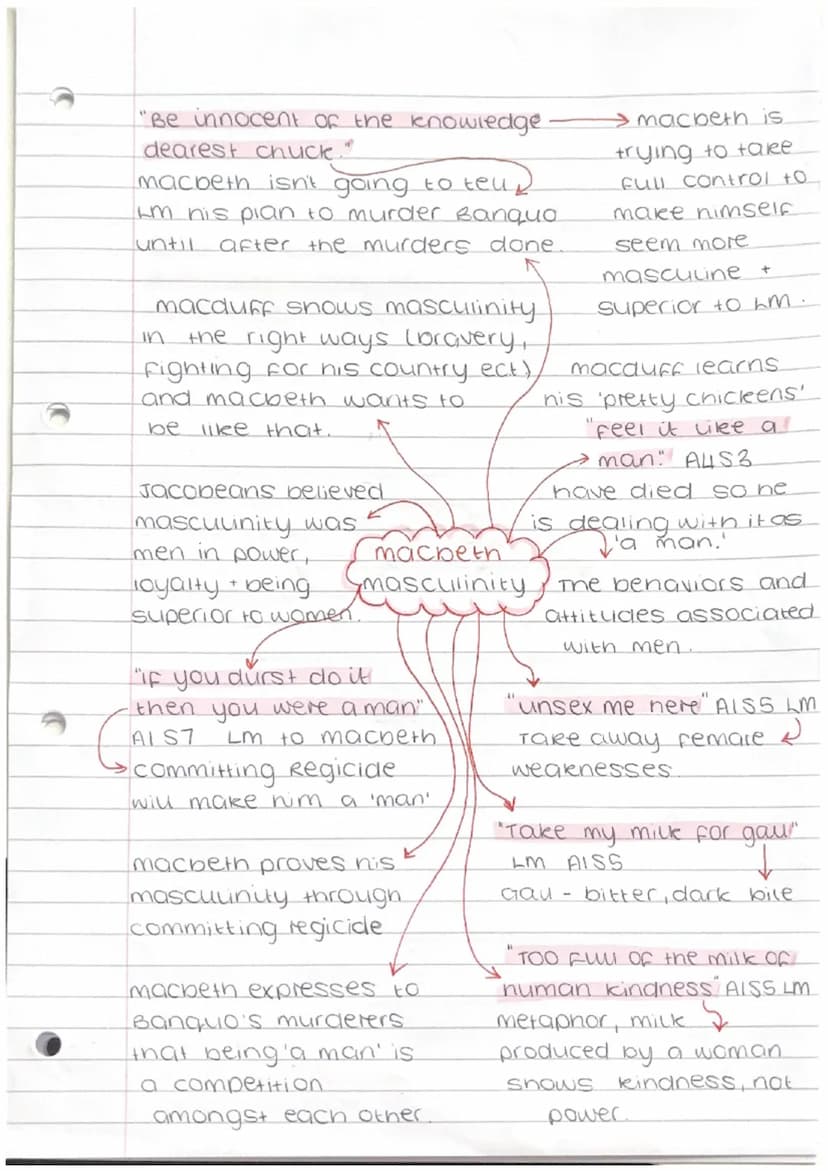 "Be innocent of the knowledge
dearest chuck."
macbeth isn't going to tell
LM his plan to murder Banquo
until after the murders done.
macbeth is
trying to take
full control to
make himself
seem more
masculine +
superior to LM.
macduff shows masculinity
in the right ways (bravery,
fighting for his country ect)
and macbeth wants to
be like that.
macduff learns
his 'pretty chickens'
"feel it like a
man." A4S3
have died so he
is dealing with it as
'a man.'
Jacobeans believed
masculinity was
men in power,
loyalty + being
superior to women.
macbeth
masculinity
The behaviors and
attitudes associated
with men.
"if you durst do it
then you were a man"
A1S7 LM to macbeth
committing Regicide
will make him a 'man'
"unsex me here" A1S5 LM
Take away female
weaknesses.
"Take my milk for gall"
LM A1S5
Gall - bitter, dark bile
macbeth proves his
masculinity through
committing regicide
"Too full of the milk of
human kindness" A1S5 LM
metaphor, milk
produced by a woman
shows kindness, not
power.
macbeth expresses to
Banquo's murderers
that being 'a man' is
a competition
amongst each other.